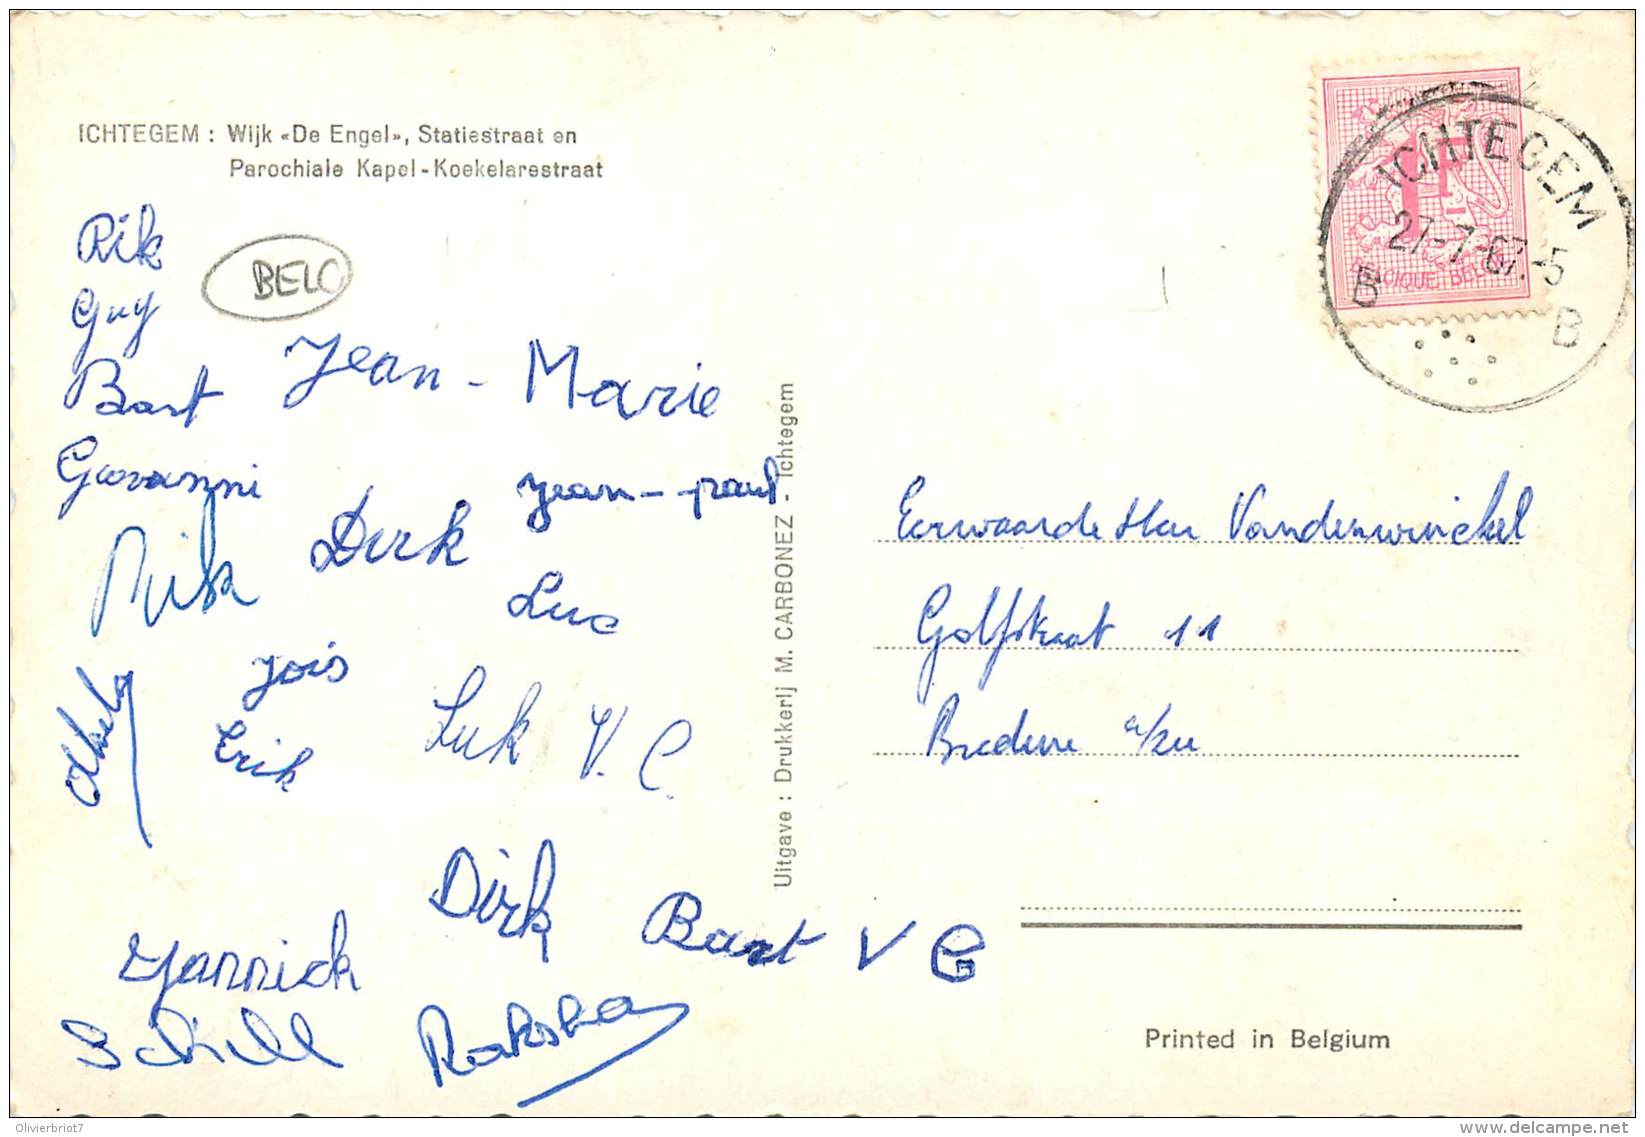 ICHTEGEM : Wijk «De Engel», Statiestraat en
Parochiale Kapel - Koekelarestraat
Rik
Guy
BELG
Bart
Jean - Marie
Giovanni
Jean - paul
Dirk
Rik
Luc
Joris
Erik
Luk V. C.
Dirk
Bart V G
Yannick
Schill
Uitgave : Drukkerij M. CARBONEZ - Ichtegem
ICHTEGEM
27-7-67.-5
B B
1F
BELGIQUE BELGIE
Eerwaarde Heer Vandenwinckel
Golfstraat 11
Bredene a/zee
Printed in Belgium
Olivierbriot7
delcampe.net